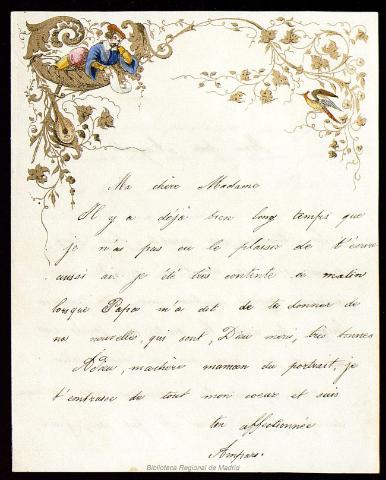 Ma chère Madame
Il y a déjà bien long temps que
je n'ai pas eu le plaisir de t'écrire
aussi ai je été très contente ce matin
lorsque Papa m'a dit de te donner de
nos nouvelles, qui sont, Dieu merci, très bonnes
Adieu, ma chère maman du portrait, je
t'embrasse de tout mon coeur et suis
ton affectionnée
Amparo.
Biblioteca Regional de Madrid